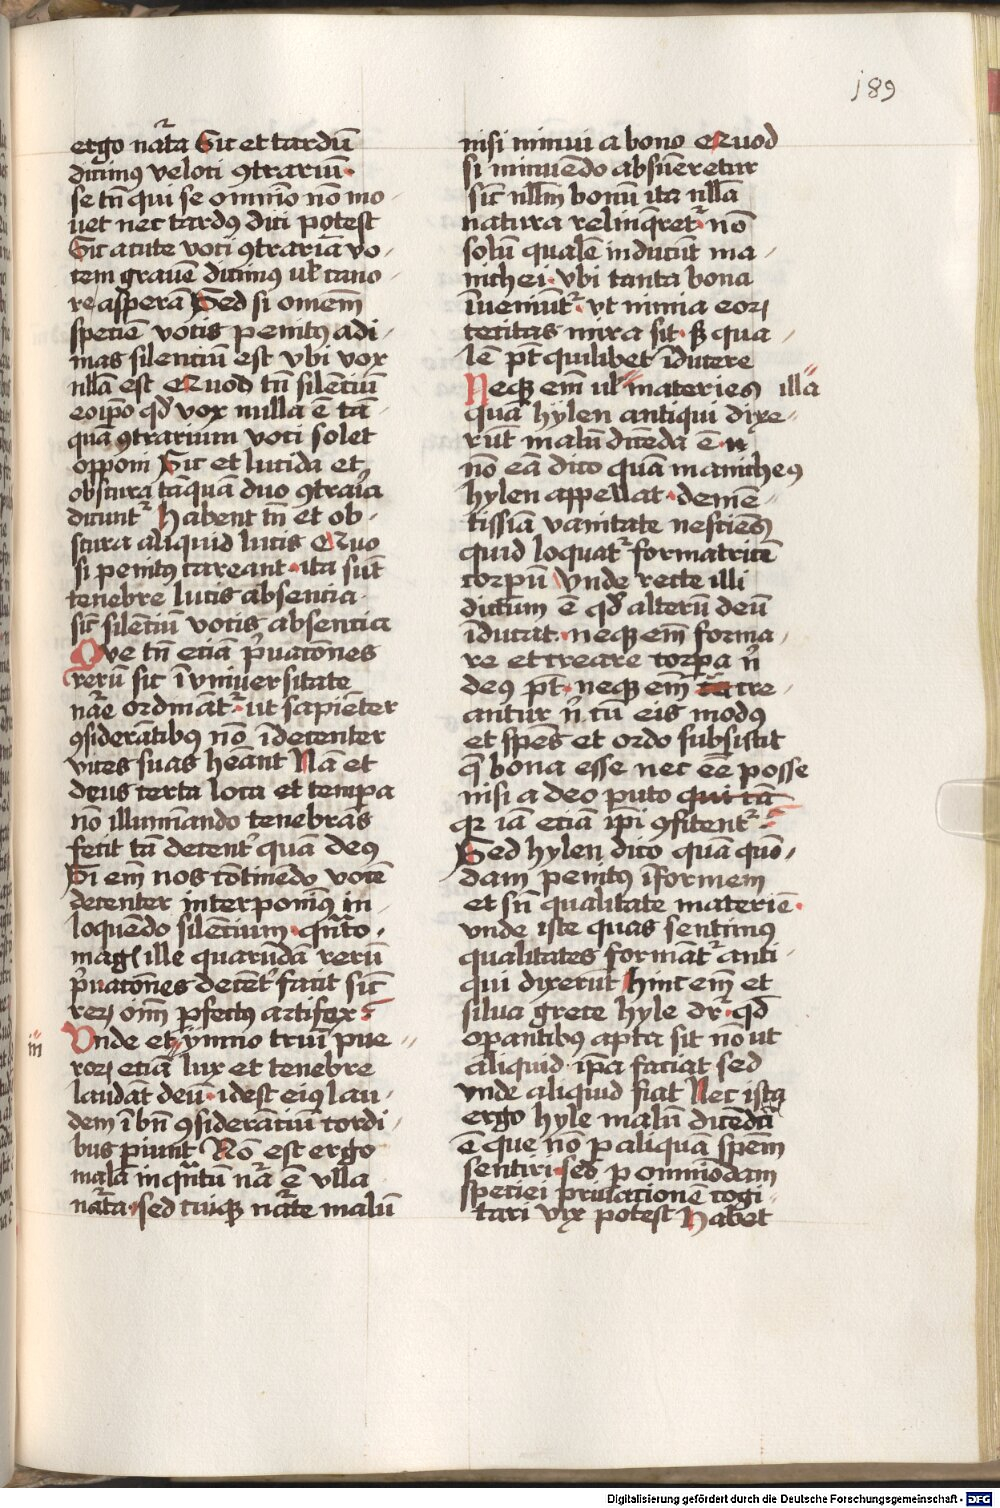 189
ergo nat̃a Sic et tardū
dicimꝰ veloci ꝯtrariū·
se tn̄ qui se omnīo nō mo
uet nec tardꝰ dici potest
Sic acute voci ꝯtrariā vo
cem grauē dicimꝰ uł cano
re asperā Sed si omēm
speciē vocis penitꝰ adi
mas silenciū est vbi vox
nłła est Quod tn̄ silēciū
eoip̄o qđ vox nulla ē tā
quā ꝯtrarium voci solet
opponi Sic et lucida et
obscura tāquā duo ꝯtrar̄ia
dicunt᷑ Habent tn̄ et ob
scura aliquid lucis Quo
si penitꝰ careant· ita sūt
tenebre lucis absencia
sic̄ silēciū vocis absencia
Que tn̄ eciā pͥuacōnes
rerū sic ī vniuersitate
nāe ordināt᷑· ut sapiēter
ꝯsiderātibꝰ nō īdecenter
vices suas hēant Nā et
deus certa loca et tempa
nō illuminando tenebras
fecit tā decent᷑ quā deꝰ
Si em̄ nos cōtinēdo vocē
decenter interponimꝰ in
loquēdo silēcium· qͣnto
magꝭ ille quarūdā rerū
pͥuacōnes decēt᷑ facit sic̄
reꝝ oīm ꝑfectꝰ artifex·
iii
Vnde et ymno triū pue
roꝝ eciā lux et tenebre
laudāt deū· idest eiꝰ lau
dem ī bn̄ ꝯsiderāciū cordi
bus piunt Nō est ergo
mala inqͣntū nāᷓ ē vlla
nat̃a· sed cuiqꝫ nat̃e malū
nisi minui a bono Quod
si minuēdo absūeretur
sic̄ nłłm bonū ita nłła
natura relinq̄ret᷑· nō
solū qualē inducūt ma
nichei· vbi tanta bona
īueniūt᷑· vt nimia eoꝝ
cecitas mira sit· sꝫ qua
lē pt̄ quilibet īducere
Neqꝫ em̄ uł materies illa
quā hylen antiqui dixe
rūt malū dicēda ē
nō eā dico quā manicheꝰ
hylen appellat· demē
tissiā vanitate nesciēs
quid loquat᷑ formatricē
corpꝝ Vnde recte illi
dictum ē qđ alterū deū
īducat· neqꝫ em̄ forma
re et creare corpa nͥ
deꝰ pt̄· neqꝫ em̄ cre
antur nͥ cū eis modꝰ
et spēs et ordo subsistit
q̄ bona esse nec eē posse
nisi a deo puto qui tā
qꝛ iā eciā ip̄i ꝯfitent᷑·
Sed hylen dico quā quō
dam penitꝰ īformem
et sn̄ qualitate materiē·
vnde iste quas sentimꝰ
qualitates formāt᷑ anti
qui dixerūt hinc em̄ et
silua grece hyle dr᷑· qđ
oꝑantibꝰ apta sit nō ut
aliquid ip̄a faciat sed
vnde aliquid fiat Nec ista
ergo hyle malū dicēda
ē que nō ꝑ aliquā spēm
sentiri· sed ꝑ omniōdam
speciei priuacione cogi
tari vix potest Habet
Digitalisierung gefördert durch die Deutsche Forschungsgemeinschaft - DFG